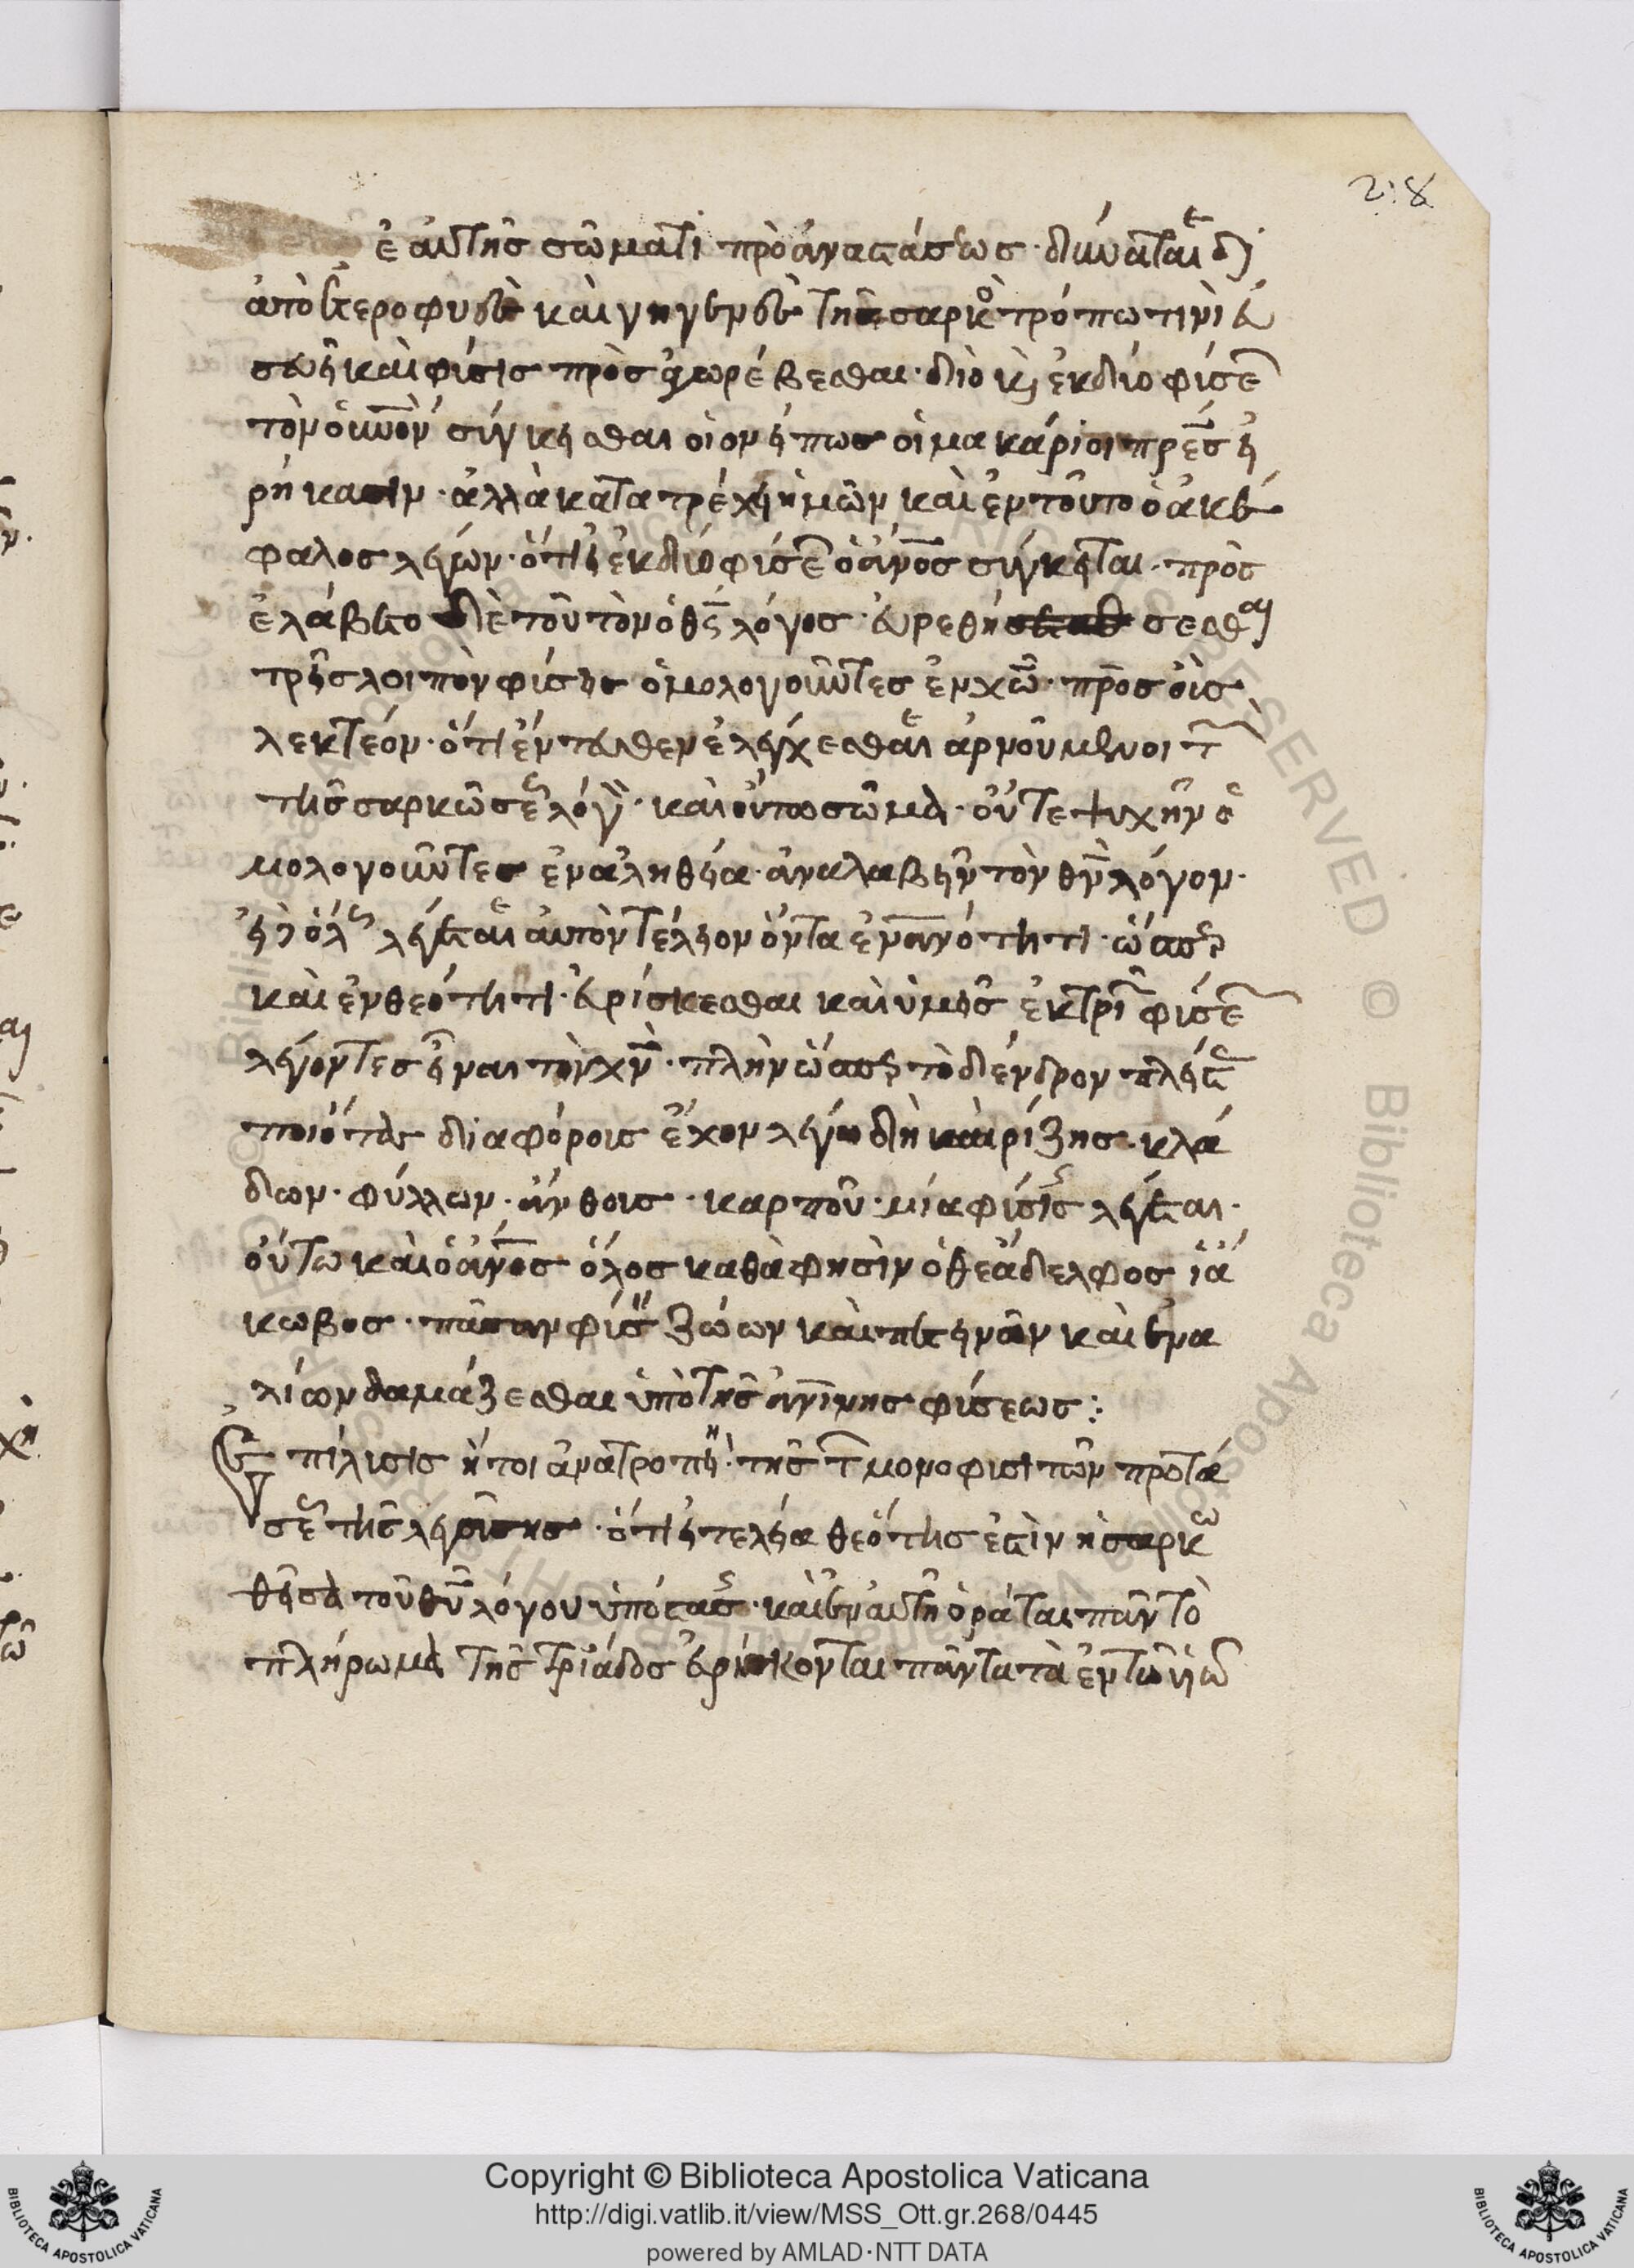 218
ἑαυτῆς σώματι πρὸ ἀναστάσεως· δύναται δὲ
ἀπὸ ἑτεροφυοὺς καὶ γηγενοῦς τῆς σαρκὸς τρόπω τινὶ
καὶ φύσις προσαγωρέβεσθαι· διὸ κ(αὶ) ἐκ δύο φύσε
τὸν ἄνον σύγκεισθαι οἱονείπως οἱ μακάριοι πρες εἰ
ρήκασιν· ἀλλὰ κατατρέχει ἡμῶν καὶ ἐν τούτο ὁ ἀκέ
φαλος λέγων· ὅτι εἰ ἐκ δύο φύσε ὁ ἄνος σύγκειται· προσ
ελάβετο δὲ τοῦτον ὁ θς λόγος· εὑρεθήσεσθαι
τρεῖς λοιπὸν φύσεις ὁμολογοῦντες ἐν χω· πρὸς οἷς
λεκτέον· ὅτι ἐντεῦθεν ἐλέγχεσθαι ἀρνούμενοι τ
τῆς σαρκώσεως λόγον· καὶ οὔτε σῶμα· οὔτε ψυχὴν ὁ
μολογοῦντες ἐν ἀληθεία· ἀναλαβεῖν τὸν θν λόγον·
εἰ γ(ὰρ) ὅλως λέγεται αὐτὸν τέλειον ὄντα ἐν ανότητι· ὥσπερ
καὶ ἐν θεότητι· εὑρίσκεσθαι καὶ ὑμεῖς ἐκ τρι φύσε
λέγοντες εἶναι τὸν χν· πλὴν ὥσπερ τὸ δένδρον πλείστ
ποιότης διαφόροις ἔχον λέγω δὴ καὶ ρίζης· κλά
δων· φύλλων· ἄνθοις· καρποῦ· μία φύσις λέγεται·
οὕτω καὶ ὁ ἄνος ὅλος καθὰ φησὶν ὁ θεάδελφος ἰά
κωβος· πᾶσαν φύσιν ζώων καὶ πετεινῶν καὶ ἐνα
λίων δαμάζεσθαι ὑπὸ τῆς ανίνης φύσεως:
Ἐπίλυσις ἤτοι ἀνατροπὴ· τῆς τ μονοφυσιτῶν προτά
σεως τῆς λεγούσης· ὅτι εἰ τελεία θεότης ἐστὶν ἡ σαρκω
θεῖσα τοῦ θυ λόγου ὑπόστασις· καὶ ἐν αὐτῇ ὁρᾶται πᾶν τὸ
πλήρωμα τῆς τριάδος εὑρίσκονται πάντα τὰ ἐν τῶ
Copyright © Biblioteca Apostolica Vaticana
http://digi.vatlib.it/view/MSS_Ott.gr.268/0445
powered by AMLAD·NTT DATA
BIBLIOTECA APOSTOLICA VATICANA
BIBLIOTECA APOSTOLICA VATICANA